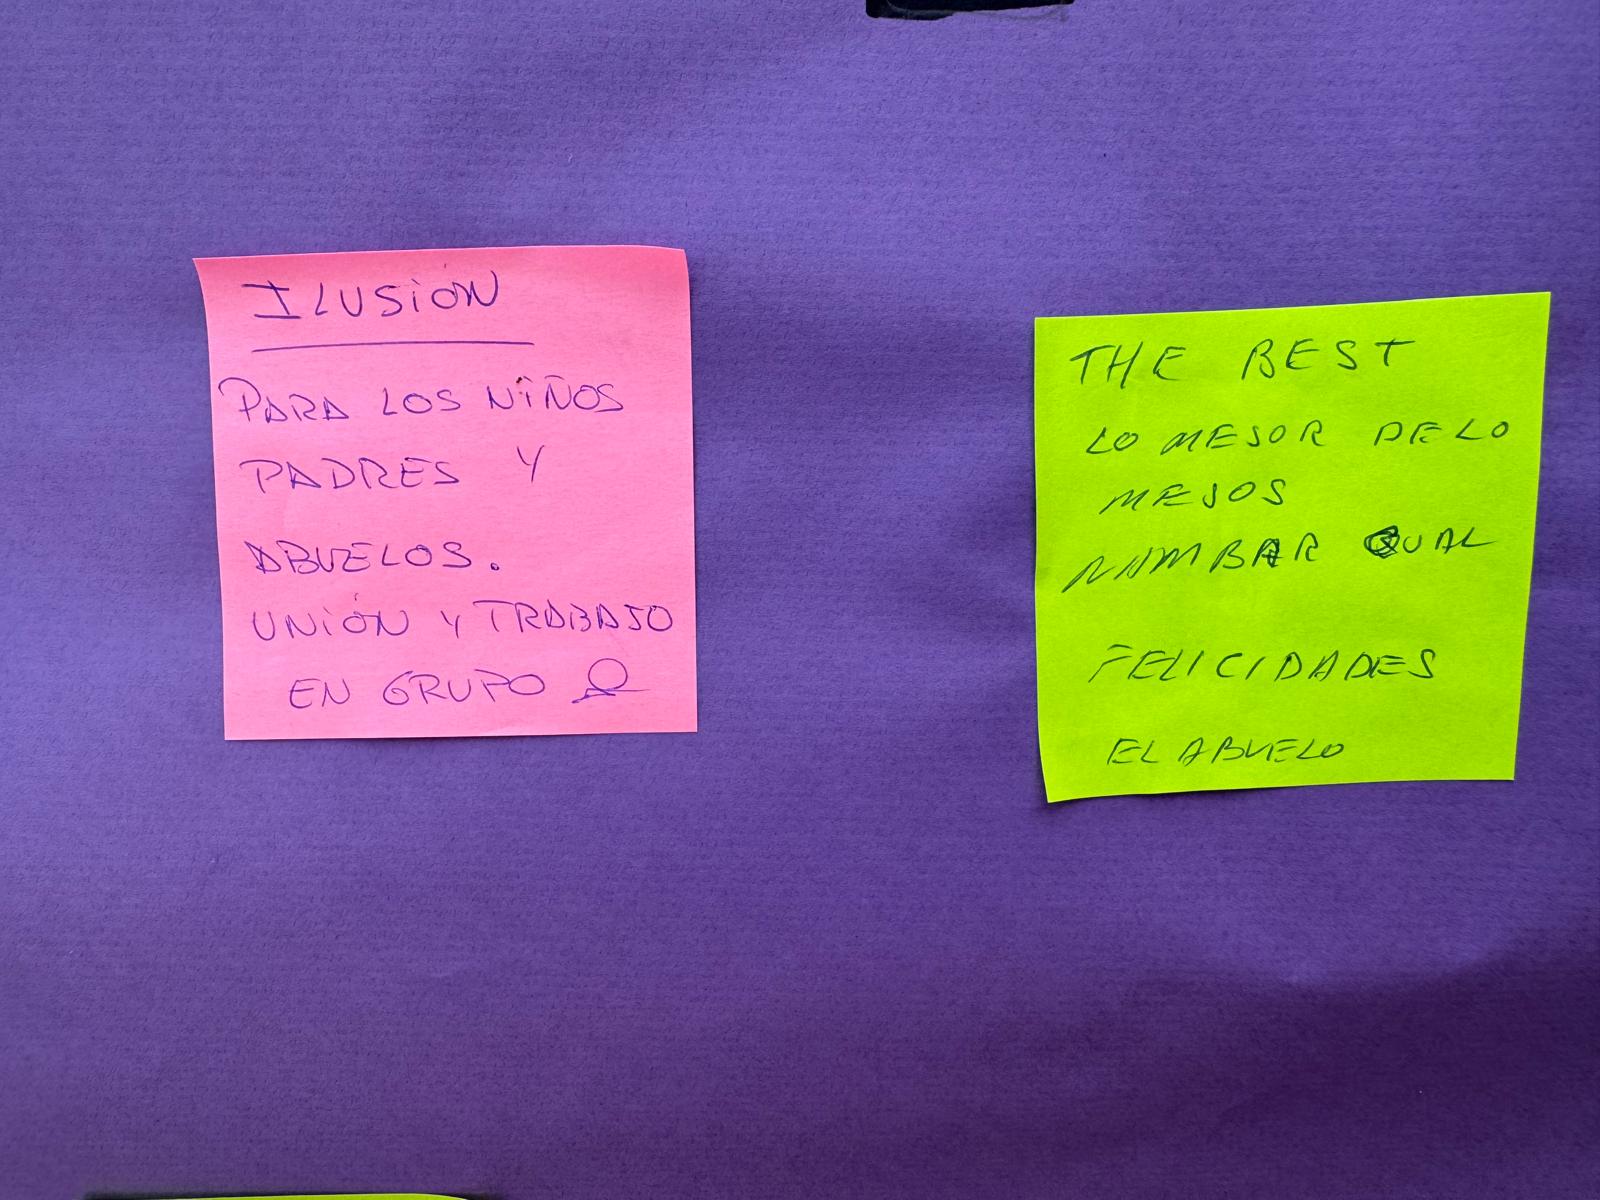 ILUSIÓN
PARA LOS NIÑOS
PADRES Y
ABUELOS.
UNIÓN Y TRABAJO
EN GRUPO
THE BEST
LO MEJOR DE LO
MEJOS
NUMBAR QUAL
FELICIDADES
EL ABUELO